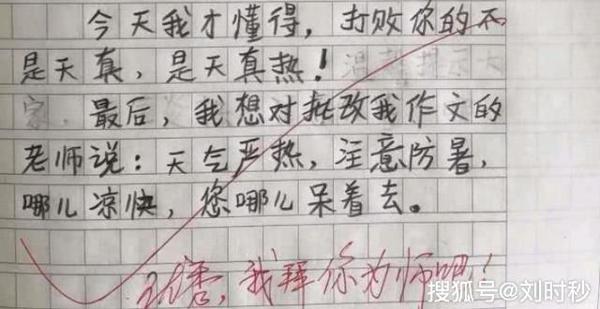 今天我才懂得，打败你的不
是天真，是天真热！
最后，我想对批改我作文的
老师说：天气严热，注意防暑，
哪儿凉快，您哪儿呆着去。
我拜你为师吧！
搜狐号@刘时秒